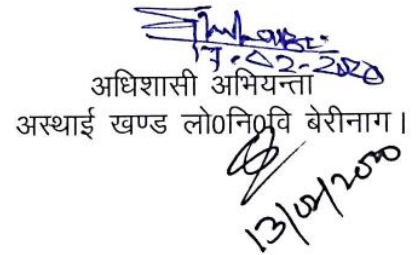 17-02-2020
अधिशासी अभियन्ता
अस्थाई खण्ड लो0नि0वि बेरीनाग।
13/02/2020